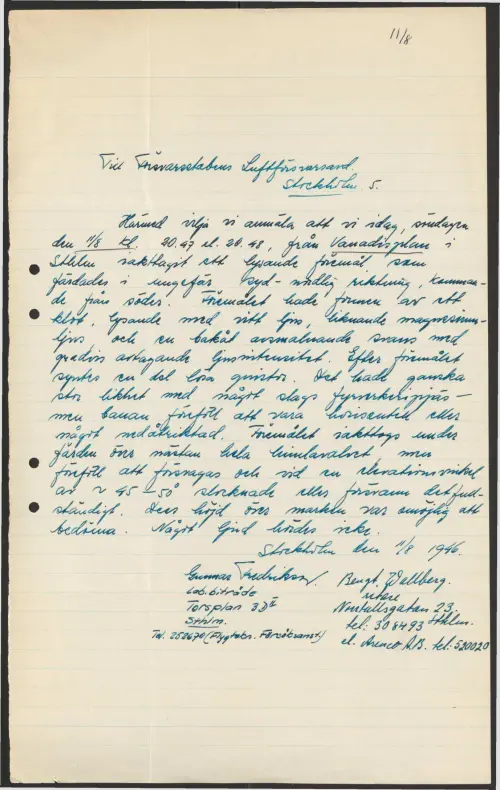 11/8
Till Försvarsstabens Luftförsvarsavd.
Stockholm 5.
Härmed vilja vi anmäla att vi idag, söndagen
den 11/8 kl. 20.47 el. 20.48, från Vanadisplan i
Sthlm iakttagit ett lysande föremål som
färdades i ungefär syd-nordlig riktning, komman-
de från söder. Föremålet hade formen av ett
klot, lysande med vitt ljus, liknande magnesium-
ljus och en bakåt avsmalnande svans med
gradvis avtagande ljusintensitet. Efter föremålet
syntes en del lösa gnistor. Det hade ganska
stor likhet med något slags fyrverkeripjäs –
men banan föreföll att vara horisontell eller
något nedåtriktad. Föremålet iakttogs under
färden över nästan hela himlavalvet, men
föreföll att försvagas och vid en elevationsvinkel
av ~ 45–50° slocknade eller försvann det full-
ständigt. Dess höjd över marken var omöjlig att
bedöma. Något ljud hördes icke.
Stockholm den 11/8 1946.
Gunnar Fredrikson.
Lab.biträde
Torsplan 3
Sthlm.
Tel. 252670 (Flygtekn. Försöksanst.)
Bengt Wallberg.
ritare
Norrtullsgatan 23.
Sthlm.
tel: 308493
el. Arenco A.B. tel: 520020